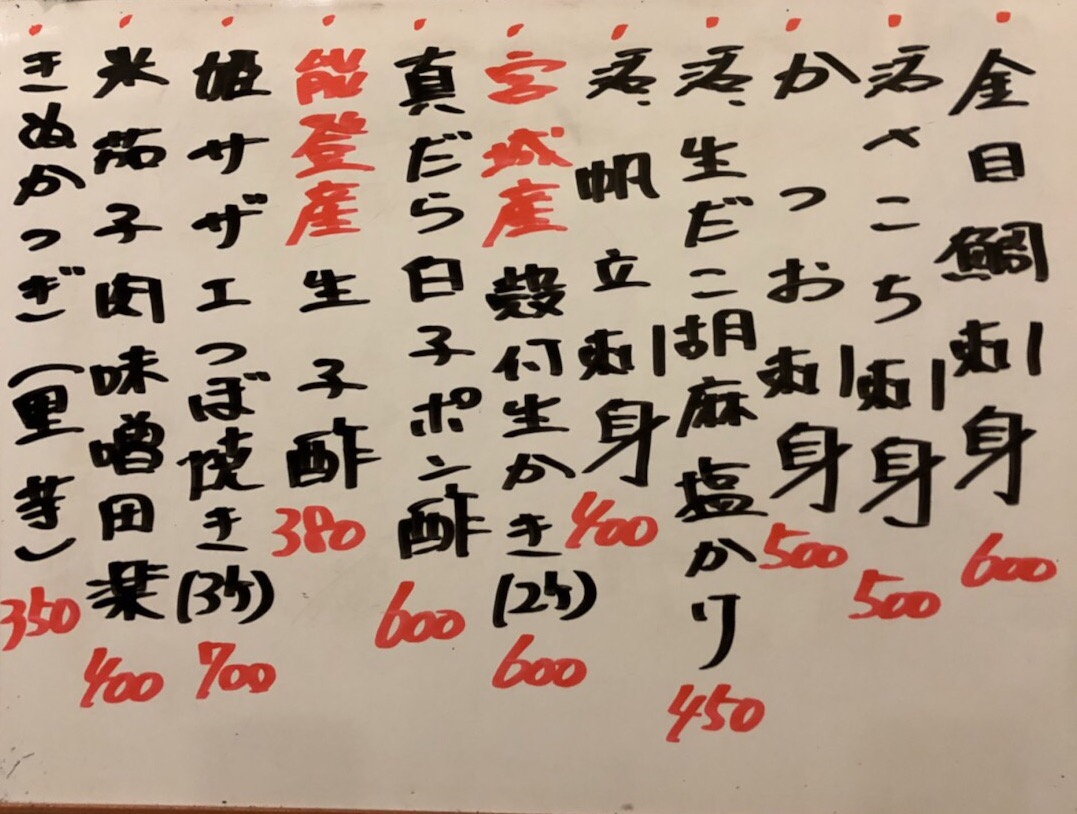 金目鯛刺身 600
活〆こち刺身 500
かつお刺身 500
活生だこ胡麻塩かり 450
活帆立刺身 400
宮城産殻付生かき(2ケ) 600
真だら白子ポン酢 600
能登産生子酢 380
姫サザエつぼ焼き(3ケ) 700
米茄子肉味噌田楽 400
きぬかつぎ(里芋) 350